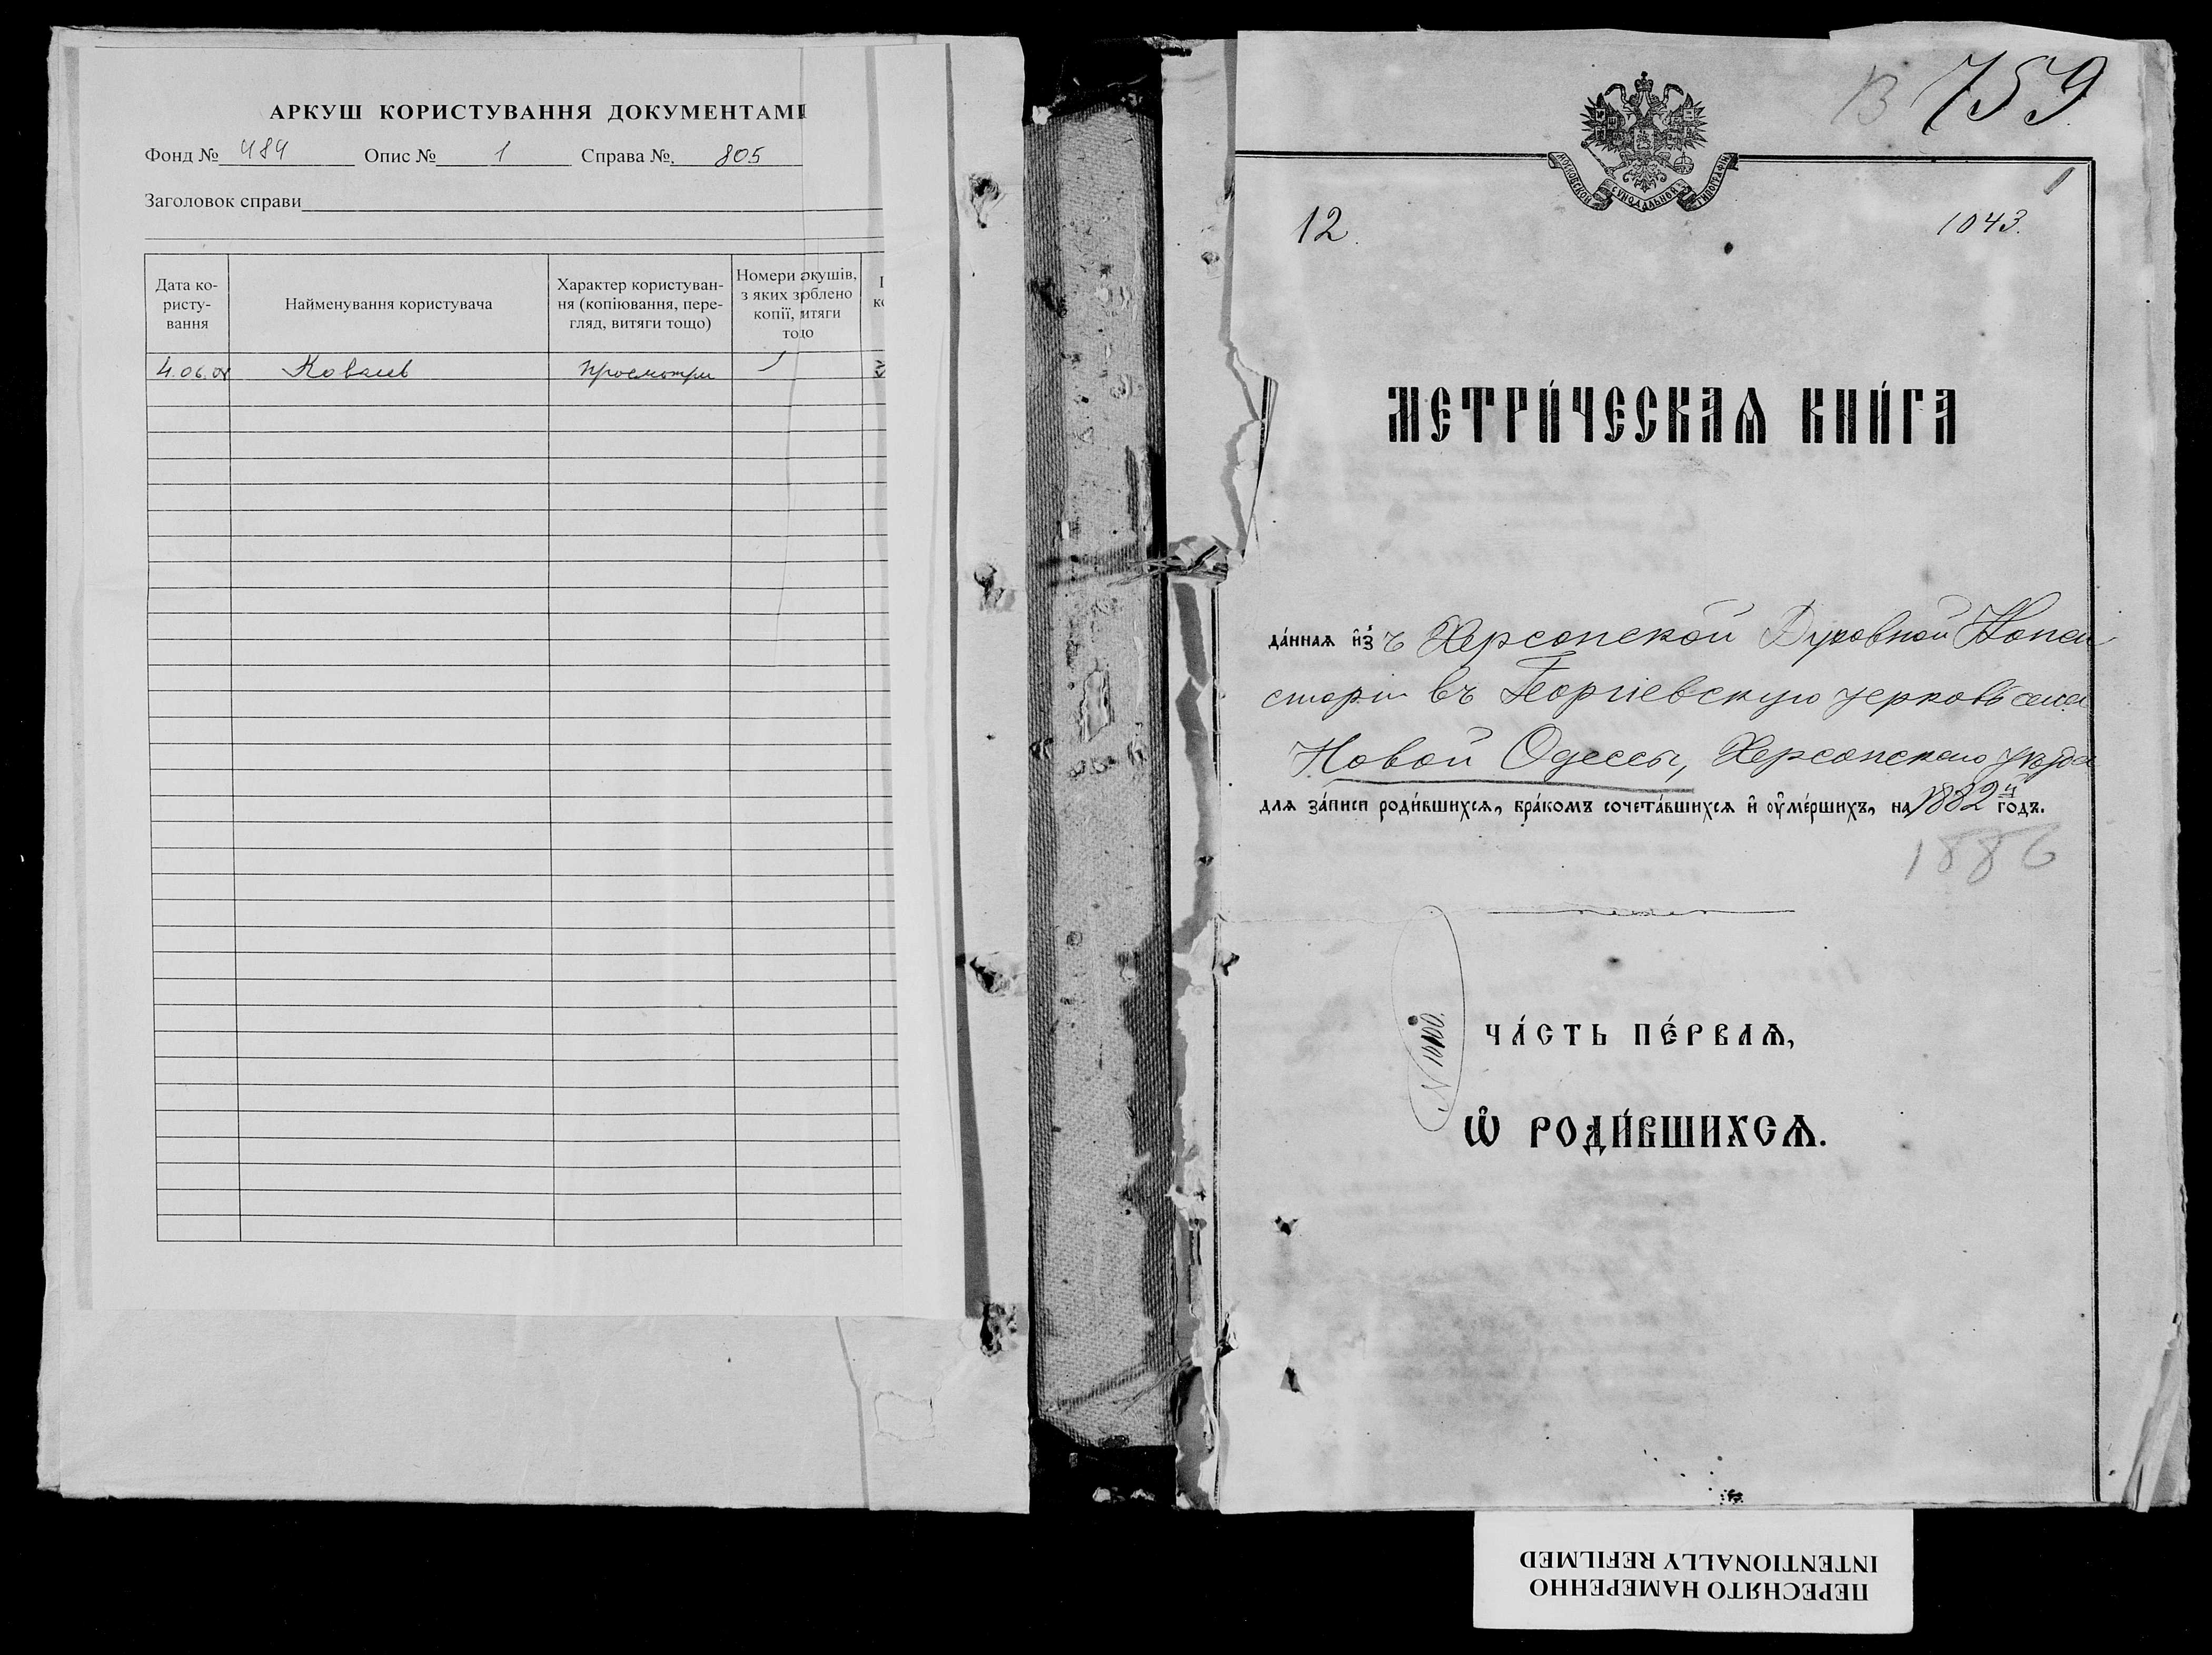 АРКУШ КОРИСТУВАННЯ ДОКУМЕНТАМИ
Фонд № 484 Опис № 1 Справа № 805
Заголовок справи
Дата ко-
ристу-
вання
Найменування користувача
Характер користуван-
ня (копіювання, пере-
гляд, витяги тощо)
Номери ркушів,
з яких зрблено
копії, итяги
тоо
4.06.08 Ковалев просмотри
В 759
1
МОСКОВСКОЙ СѴНОДАЛЬНОЙ ТИПОГРАФІИ
12. 1043.
МЕТРИ́ЧЕСКАѦ КНИ́ГА
да́нная и҆з ъ Херсонской Духовной Конси
сторіи въ Георгіевскую церковь села
Новой Одессы, Херсонскаго уѣзда
для за́писи роди́вшихся, бра́комъ сочета́вшихся и҆ ѹ҆ме́ршихъ, на 1882 й го́дъ.
1886
N 10100.
ЧА́СТЬ ПЕ́РВАѦ,
Ѡ҆ РОДИ́ВШИХСѦ.
ПЕРЕСНЯТО НАМЕРЕННО
INTENTIONALLY REFILMED